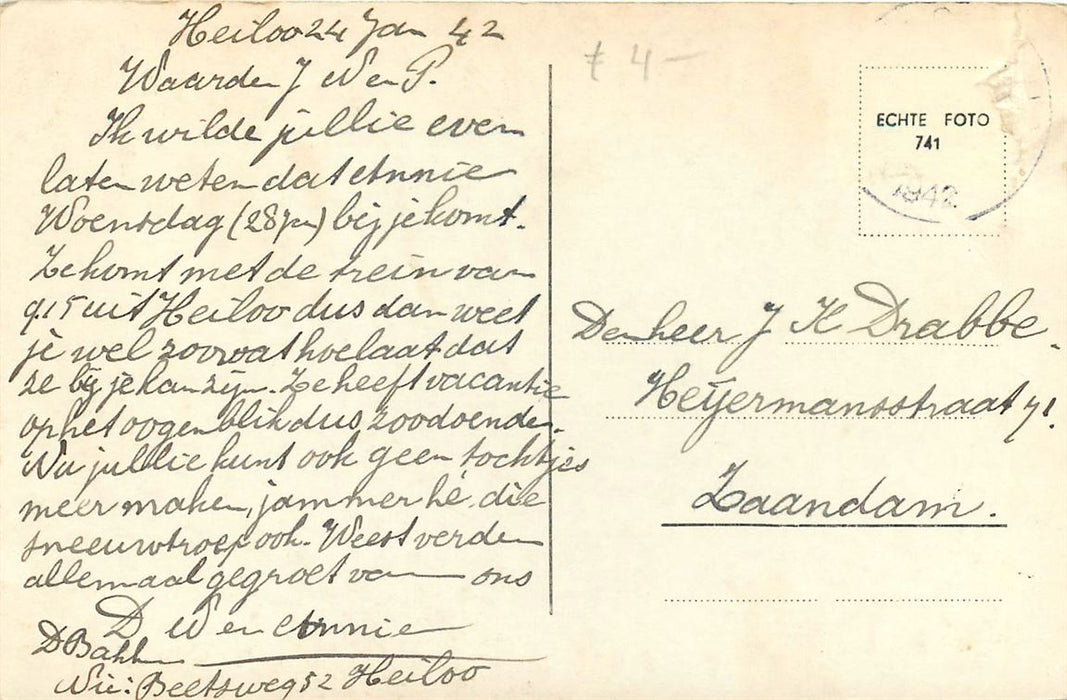 Heiloo 24 Jan 42
Waarden J W en P.
Ik wilde jullie even
laten weten dat Annie
Woensdag (28 Jan) bij je komt.
Ze komt met de trein van
9.15 uit Heiloo dus dan weet
je wel zoowat hoelaat dat
ze bij je kan zijn. Ze heeft vacantie
op het oogenblik dus zoodoende.
Nu jullie kunt ook geen tochtjes
meer maken, jammer hè. die
sneeuwtroep ook. Weest verder
allemaal gegroet van ons
D W en Annie
D Bakker
Beetsweg 52 Heiloo
4-
ECHTE FOTO
741
1942
Den heer J K Drabbe.
Heijermansstraat 71.
Zaandam.